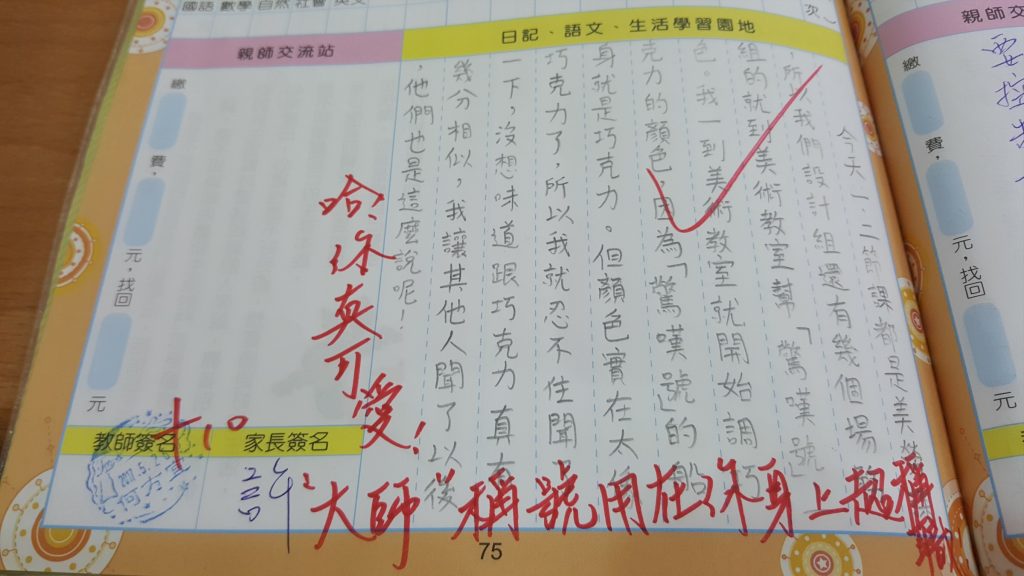 國語 數學 自然 社會 英文
日記、語文、生活學習園地
親師交流站
今天一、二節課都是美勞
,所以我們設計組還有幾個場
組的就到美術教室幫「驚嘆號」
色。我一到美術教室就開始調巧
克力的顏色,因為「驚嘆號」的船
身就是巧克力。但顏色實在太像
巧克力了,所以我就忍不住聞
一下,沒想味道跟巧克力真有
幾分相似,我讓其他人聞了以後
,他們也是這麼說呢!
哈、你真可愛!
大師 稱號用在你身上超稱職
+10
繳
費,
元,找回
元
教師簽名
家長簽名
75
親師交
繳
費,
元,找回
元